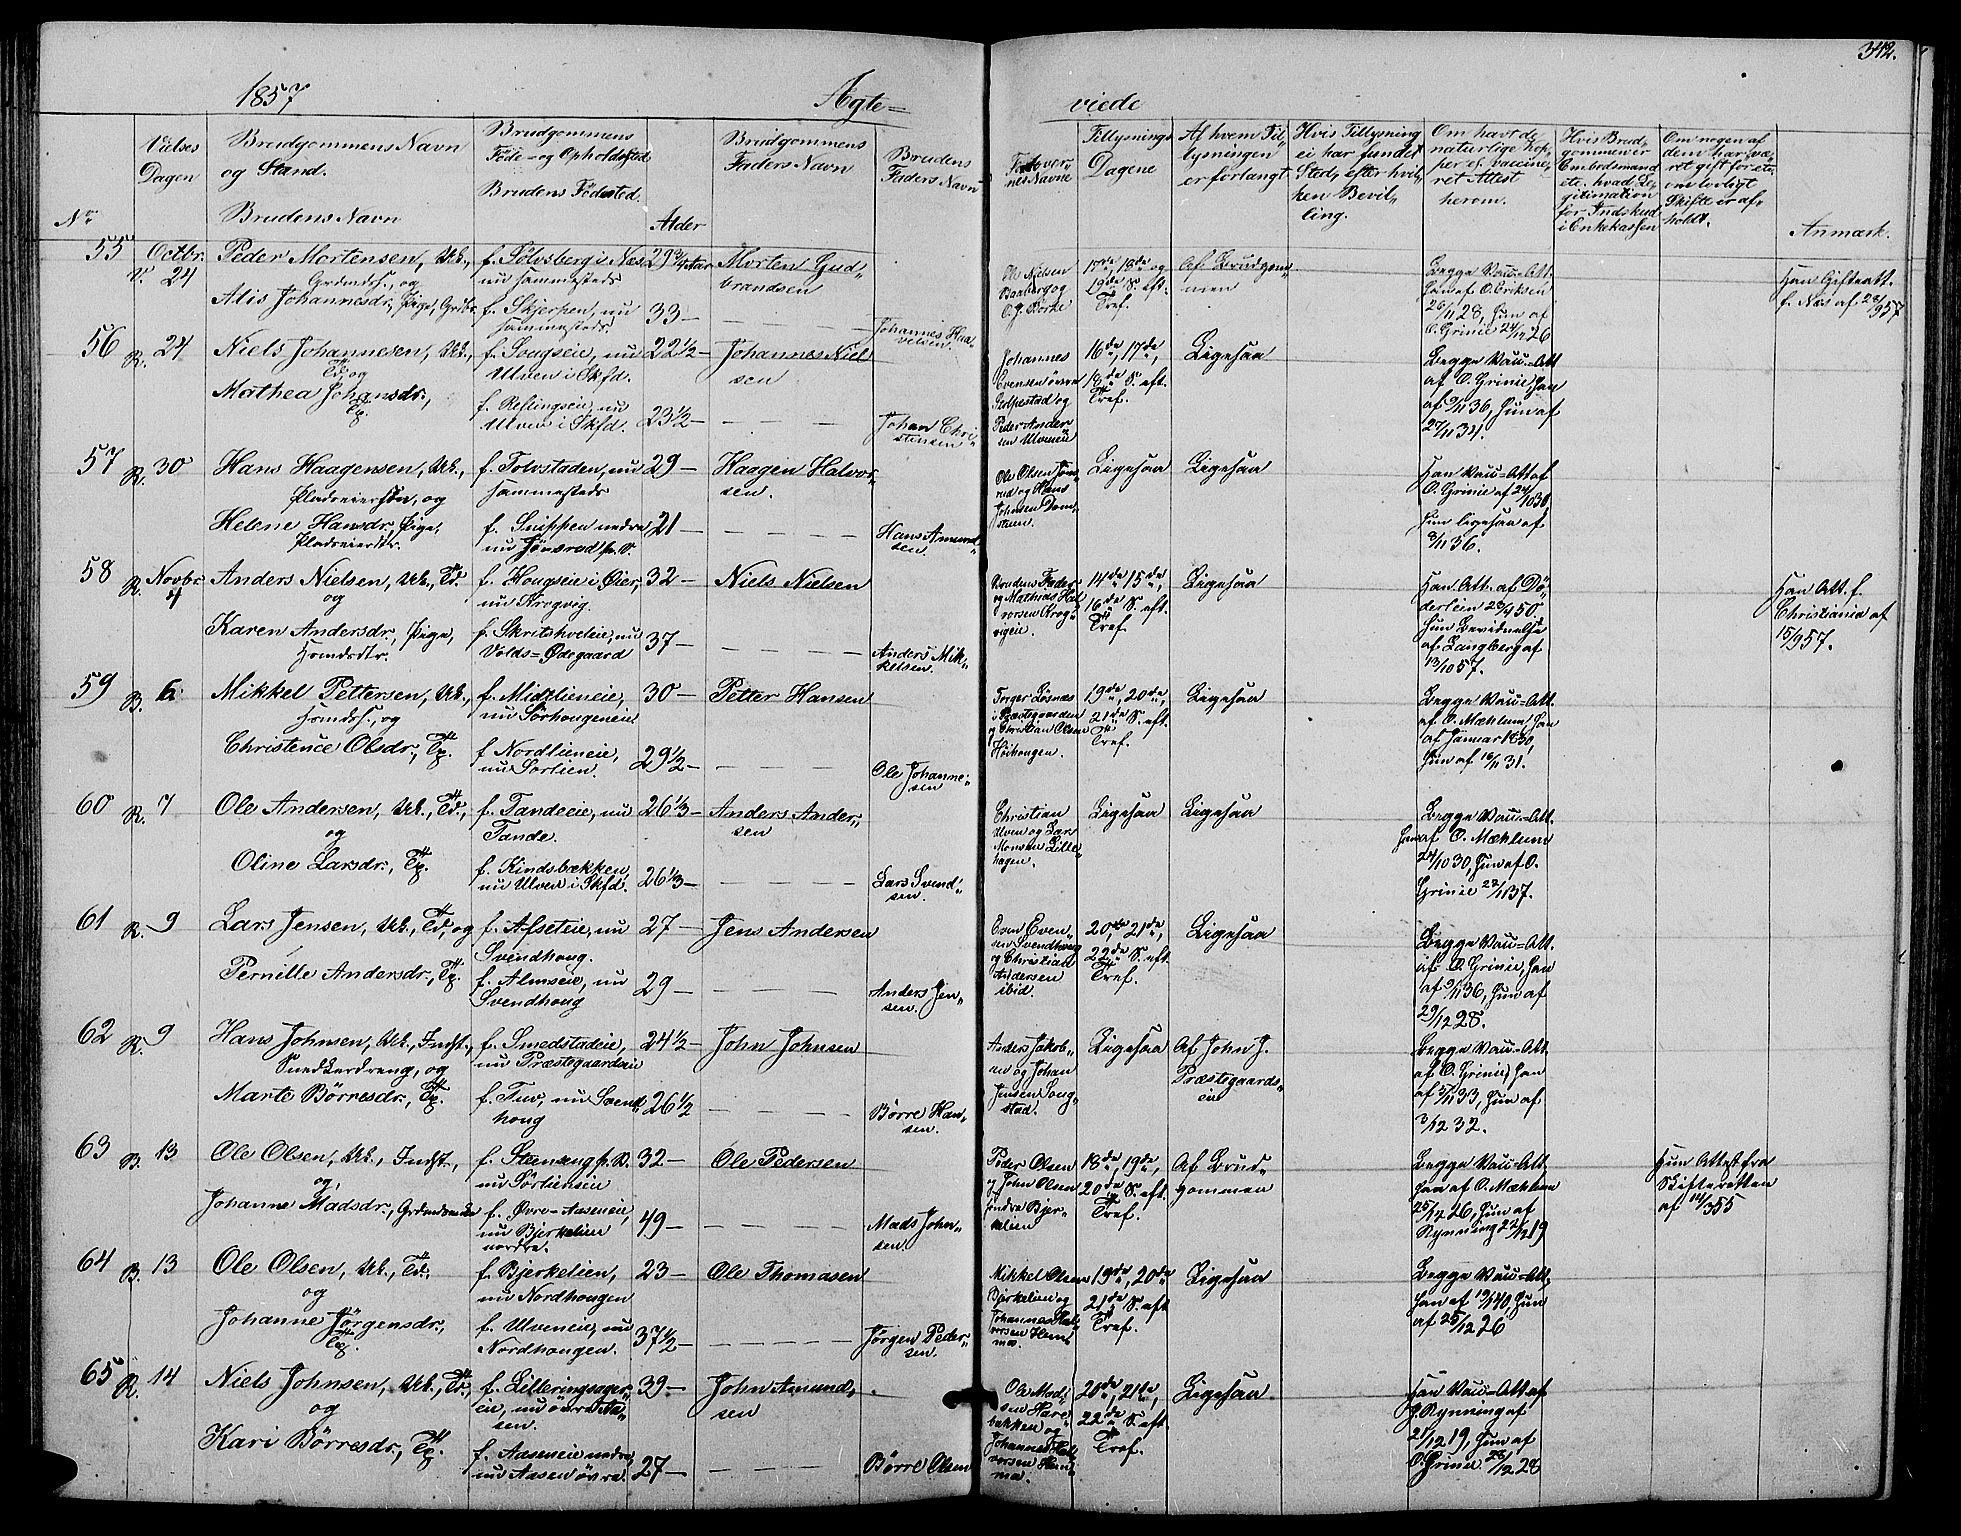 342.
1857
Ægte=
viede
No
Vielses
Dagen
Brudgommens Navn
og Stand.
Brudens Navn
Brudgommens
Føde- og Opholdssted
Brudens Fødested.
Alder
Brudgommens
Faders Navn
Brudens
Faders Navn
Forlover-
nes Navne
Tillysnings
Dagene
Af hvem Til-
lysningen
er forlangt
Hvis Tillysning
ei har fundet
Sted, efter hvil-
ken Bevil-
ling.
Om havt de
naturlige Kop-
per el. vaccine-
ret Attest
herom.
Hvis Brud-
gommen er
Embedsmand
etc. hvad Le-
gitimation
for Indskud
i Enkekassen
Om nogen af
dem har væ-
ret gift før etc.
om lovligt
Skifte er af-
holdt.
Anmærk.
55 V. Octbr. 24
Peder Mortensen, Uk.,
Grdmds., og
Alis Johannesdr., Pige, Grdbr.
f. Sølvsberg i Næs
nu sammesteds
f. Skjerpen, nu
sammesteds.
29 3/4 Aar
33 —
Morten Gud-
brandsen
Johannes Haa-
velsen.
Ole Nielsen
Baaberg og
O. J. Borke
17de, 18de og
19de S. eft.
Tref.
Af Brudgom-
men
Begge Vac.=Att.
Han af O. Eriksen
26/11 28, Hun af
O. Grinie 24/12 26
Han Gifteatt.
f. Næs af 28/9 57
56 R. 24
Niels Johannesen, Uk.,
Td., og
Mathea Johansdr.,
Tp.
f. Sougseie, nu
Ulven i Skfd.
f. Reflingseie, nu
Ulven i Skfd.
22 1/2 —
23 1/2 —
Johannes Niel-
sen
Johan Chri-
stensen
Johannes
Evensen øvre
Stolpestad og
Peder Ander-
sen Ulveneie
16de, 17de,
18de S. eft.
Tref.
Ligesaa
Begge Vac.=Att
af O. Grinie, Han
af 9/11 36, Hun af
27/11 34.
57 R. 30
Hans Haagensen, Uk.,
Pladseiersøn, og
Helene Hansdr., Pige,
Pladseierdtr.
f. Tolvstaden, nu
sammesteds
f. Snippen nedre
nu Jønsrud p. V.
29 —
21 —
Haagen Halvor-
sen.
Hans Amund-
sen.
Ole Olsen Jøns-
rud og Hans
Johnsen Dam-
stuen.
Ligesaa
Ligesaa
Han Vac.=Att af
O. Grinie af 24/10 30
Hun ligesaa af
8/11 36.
58 R. Novbr. 4
Anders Nielsen, Uk., Td.
og
Karen Andersdr., Pige,
Hsmdsdtr.
f. Hougseie i Øier,
nu Krogvig.
f. Skritshveleie, nu
Volds=Ødegaard
32 —
37 —
Niels Nielsen
Anders Mik-
kelsen.
Brudens Fader
og Mathias Hal-
vorsen Krog-
vigeie.
14de, 15de,
16de S. eft.
Tref.
Ligesaa
Han Att. af Dö-
derlein 23/4 50.
Hun Bevidnelse
af Langberg af
13/10 57.
Han Att. f.
Christiania af
15/9 57.
59 B. 6
Mikkel Pettersen, Uk.,
Hsmdss., og
Christence Olsdr., Tp.
f. Midtlieneie,
nu Sørhougeneie
f. Nordlieneie,
nu Sørlien.
30 —
29 1/2 —
Petter Hansen
Ole Johanne-
sen
Torger Løsnæs
i Præstegaarden
og Christian Olsen
Høihougen.
19de, 20de,
21de S. eft.
Tref.
Ligesaa
Begge Vac.=Att.
af O. Mæhlum, Han
af Januar 1830,
Hun af 16/11 31.
60 R. 7
Ole Andersen, Uk., Td.,
og
Oline Larsdr., Tp.
f. Tandeeie, nu
Tande.
f. Kindsbækken,
nu Ulven i Skfd.
26 1/3 —
26 1/3 —
Anders Ander-
sen
Lars Svend-
sen.
Christian
Ulven og Lars
Monsen Lille-
hagen.
Ligesaa
Ligesaa
Begge Vac.=Att.
Han af O. Mæhlum
24/10 30, Hun af O.
Grinie 22/11 37.
61 R. 9
Lars Jensen, Uk., Td., og
Pernille Andersdr., Tp.
f. Afseteie, nu
Svendhoug.
f. Almseie, nu
Svendhoug
27 —
29 —
Jens Andersen
Anders Jen-
sen.
Even Even-
sen Svendhoug
og Christian
Andersen
ibid.
20de, 21de,
22de S. eft.
Tref.
Ligesaa
Begge Vac.=Att.
af O. Grinie, Han
af 9/11 36, Hun af
29/12 28.
62 R. 9
Hans Johnsen, Uk., Indst.,
Snedkerdreng, og
Marte Börresdr., Tp.
f. Smedstadeie,
nu Præstegaardseie
f. Tuv, nu Svend-
houg
24 1/2 —
26 1/2 —
John Johnsen
Börre Han-
sen.
Anders Jakob-
sen og Johan
Jensen Soug-
stad.
Ligesaa
Af John J.
Præstegaards-
eie
Begge Vac.=Att.
af O. Grinie, Han
af 5/11 33, Hun af
3/12 32.
63 B. 13
Ole Olsen, Uk., Indst.,
og
Johanne Madsdr., Grdmdsenke
f. Steneng p. R.
nu Sørlieneie
f. Øvre-Aaseneie,
nu Bjerkelien
nordre.
32 —
49 —
Ole Pedersen
Mads John-
sen.
Peder Olsen
og John Olsen
søndre Bjer-
kelien
18de, 19de,
20de S. eft.
Tref.
Af Brud-
gommen
Begge Vac.=Att.
Han af O. Mæhlum
25/12 26, Hun af
Rynning 22/12 19
Hun Attest fra
Skifteretten
af 14/3 55
64 B. 13
Ole Olsen, Uk., Td.,
og
Johanne Jörgensdr.,
Tp.
f. Bjerkelien,
nu Nordhougen
f. Ulveneie, nu
Nordhougen.
23 —
37 1/2 —
Ole Thomasen
Jørgen Peder-
sen.
Mikkel Olsen
Bjerkelien og
Johannes Hal-
vorsen Hem-
ma.
19de, 20de
21de S. eft
Tref.
Ligesaa
Begge Vac.=Att.,
Han af 19/11 40, Hun
af 25/12 26
65 R. 14
Niels Johnsen, Uk., Td.,
og
Kari Börresdr., Tp.
f. Lilleringsager-
eie, nu øvre Aa-
sen.
f. Aaseneie nedre,
nu Aasen øvre.
39 —
27 —
John Amund-
sen
Börre Olsen
Ole Mad-
sen Hare-
bakken og
Johannes Hal-
vorsen Hem-
ma.
20de, 21de,
22de S. eft
Tref.
Ligesaa
Han Vac.=Att af
J. Rynning af
21/12 19, Hun af
O. Grinie 28/12 28